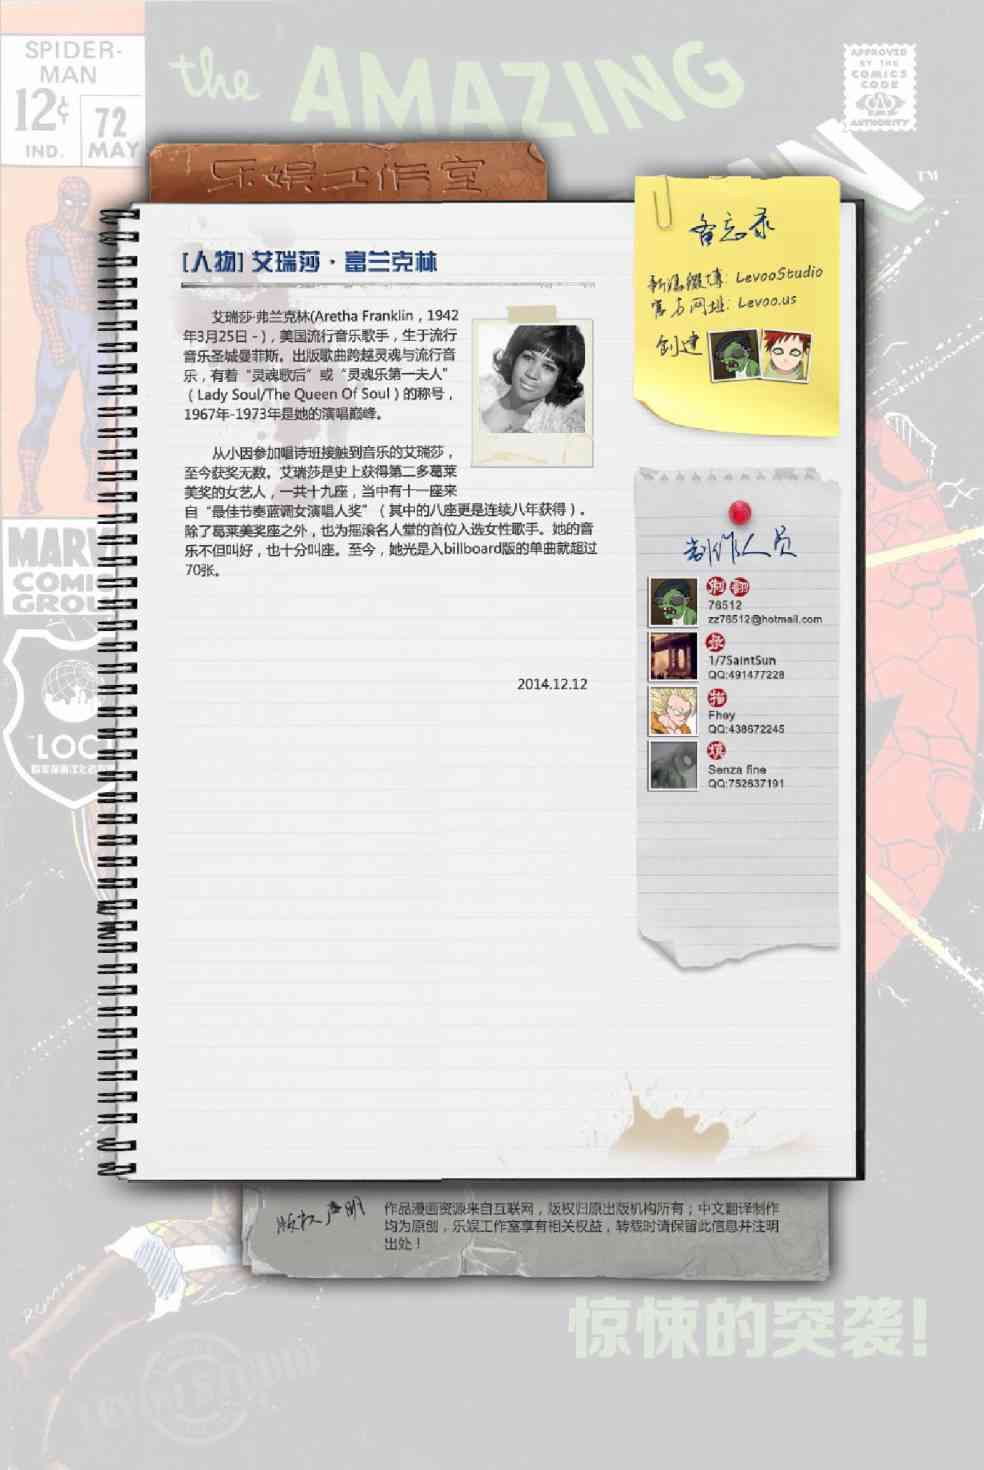 SPIDER-
MAN
12¢
IND.
72
MAY
the AMAZING
APPROVED
BY THE
COMICS
CODE
AUTHORITY
TM
乐娱工作室
[人物] 艾瑞莎·富兰克林
艾瑞莎·弗兰克林(Aretha Franklin，1942
年3月25日 - )，美国流行音乐歌手，生于流行
音乐圣城曼菲斯。出版歌曲跨越灵魂与流行音
乐，有着“灵魂歌后”或“灵魂乐第一夫人”
（Lady Soul/The Queen Of Soul）的称号，
1967年-1973年是她的演唱巅峰。
从小因参加唱诗班接触到音乐的艾瑞莎，
至今获奖无数。艾瑞莎是史上获得第二多葛莱
美奖的女艺人，一共十九座，当中有十一座来
自“最佳节奏蓝调女演唱人奖”（其中的八座更是连续八年获得）。
除了葛莱美奖座之外，也为摇滚名人堂的首位入选女性歌手。她的音
乐不但叫好，也十分叫座。至今，她光是入billboard版的单曲就超过
70张。
2014.12.12
备忘录
新浪微博: LevooStudio
官方网址: Levoo.us
创建
制作人员
制 翻
76512
zz76512@hotmail.com
录
1/7SaintSun
QQ:491477228
描
Fhey
QQ:438672245
填
Senza fine
QQ:752637191
MARV
COMIC
GROU
LOC
版权声明
作品漫画资源来自互联网，版权归原出版机构所有；中文翻译制作
均为原创，乐娱工作室享有相关权益，转载时请保留此信息并注明
出处！
惊悚的突袭!